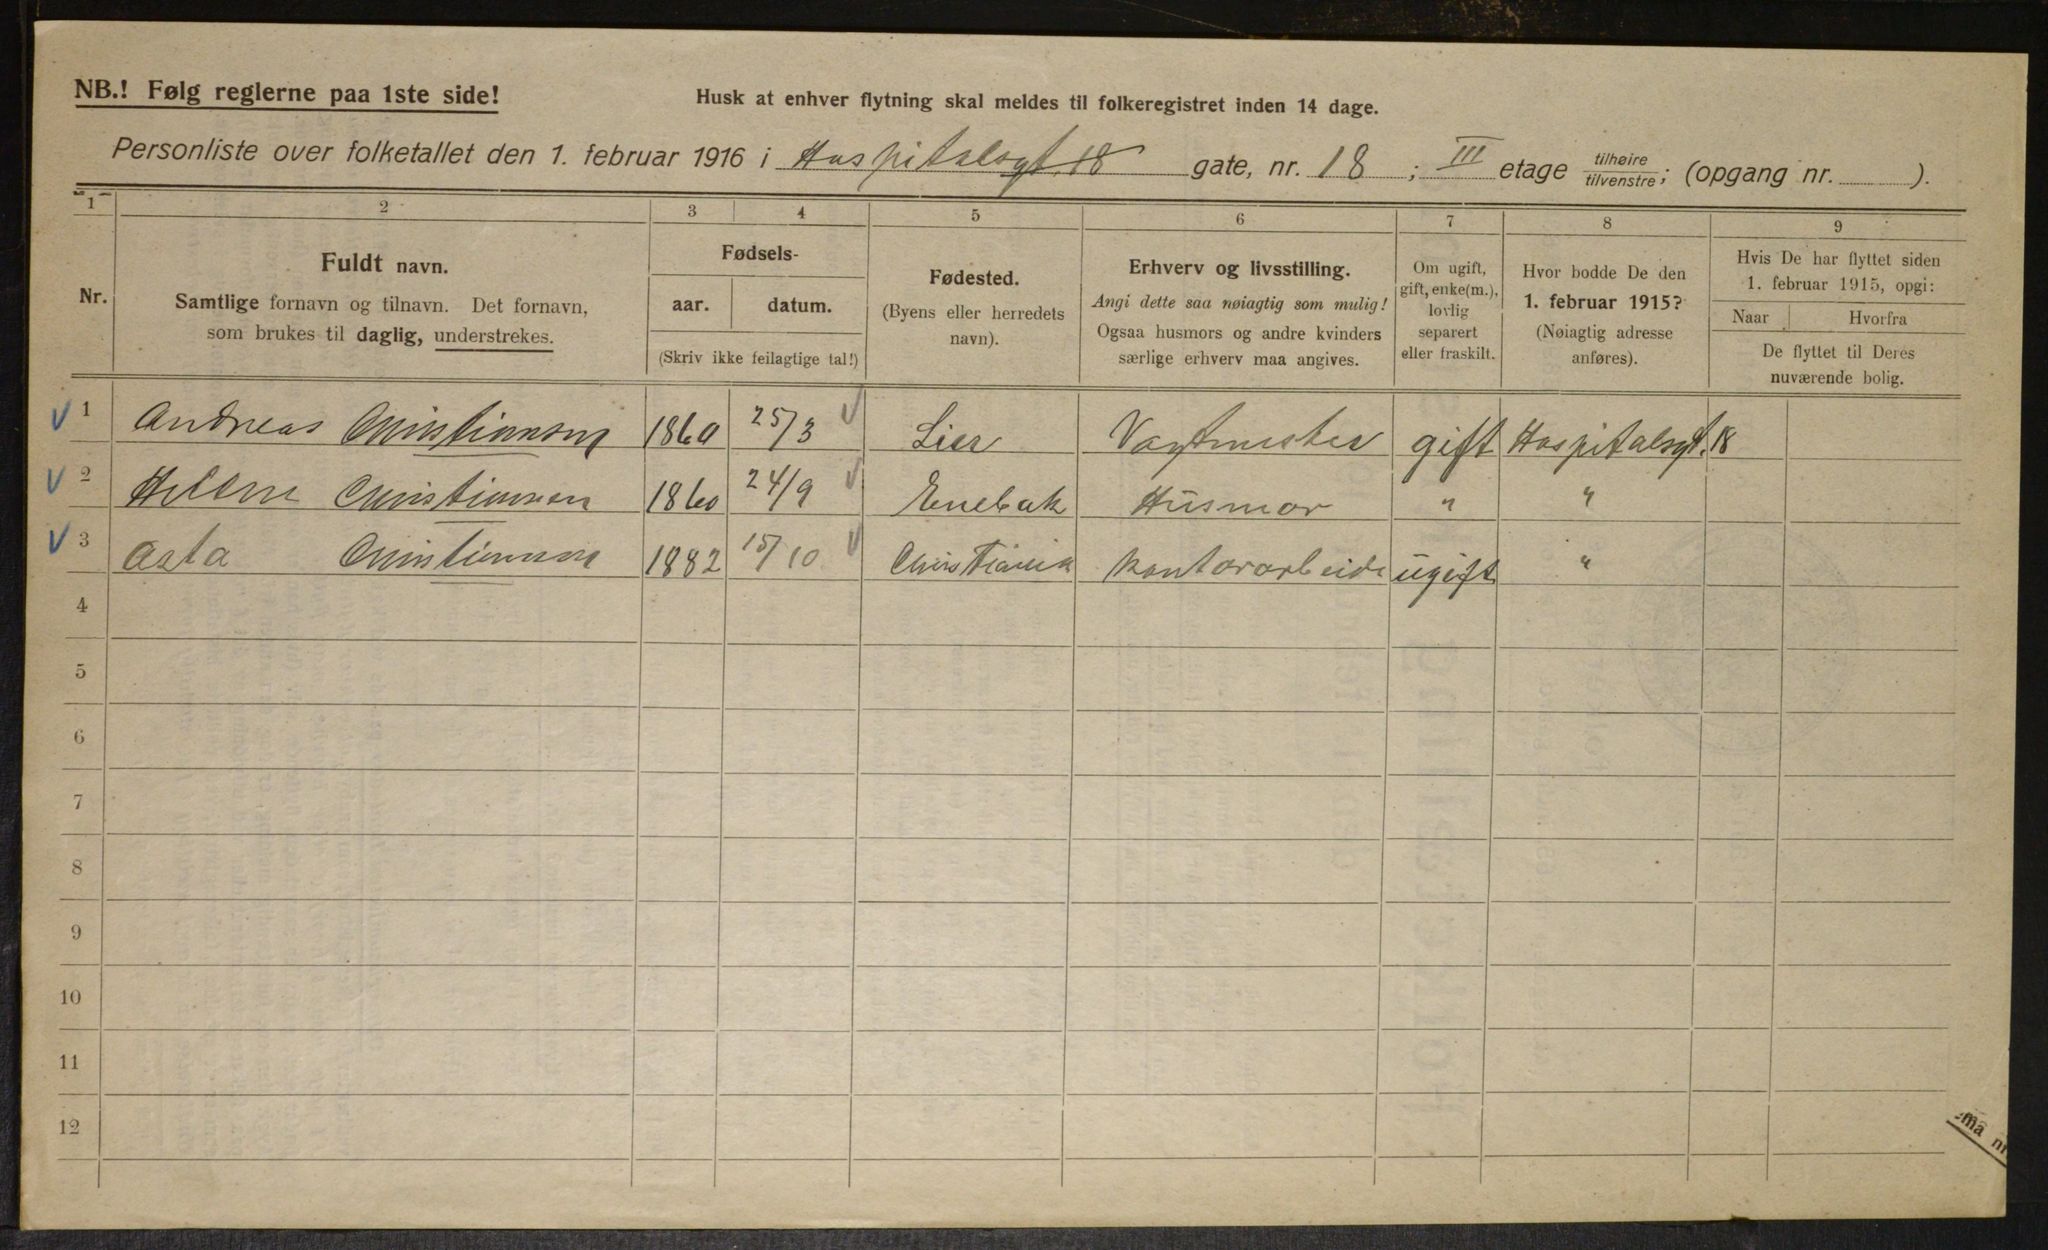 NB.! Følg reglerne paa 1ste side!
Husk at enhver flytning skal meldes til folkeregistret inden 14 dage.
Personliste over folketallet den 1. februar 1916 i Hospitalsgt. 18 gate, nr. 18; III etage tilhøire/tilvenstre; (opgang nr. ).
1 2 3 4 5 6 7 8 9
Nr.
Fuldt navn.
Samtlige fornavn og tilnavn. Det fornavn,
som brukes til daglig, understrekes.
Fødsels-
aar. datum.
(Skriv ikke feilagtige tal!)
Fødested.
(Byens eller herredets
navn).
Erhverv og livsstilling.
Angi dette saa nøiagtig som mulig!
Ogsaa husmors og andre kvinders
særlige erhverv maa angives.
Om ugift,
gift, enke(m.),
lovlig
separert
eller fraskilt.
Hvor bodde De den
1. februar 1915?
(Nøiagtig adresse
anføres).
Hvis De har flyttet siden
1. februar 1915, opgi:
Naar Hvorfra
De flyttet til Deres
nuværende bolig.
1 Andreas Christiansen 1860 25/3 Lier Vagtmester gift Hospitalsgt. 18
2 Helene Christiansen 1860 24/9 Enebak Husmor " "
3 Asta Christiansen 1882 15/10 Christiania Kontorarbeide ugift "
4
5
6
7
8
9
10
11
12
ema nr